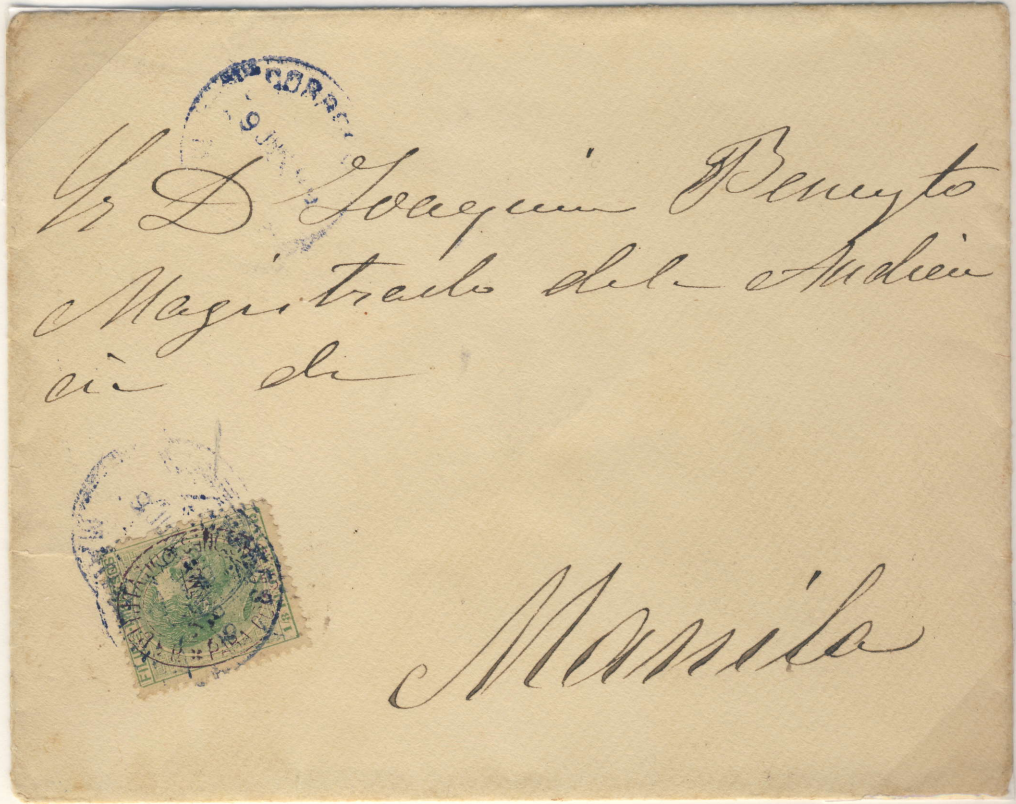 CORREOS
9 JUN
Sr D Joaquin Bernuyto
Magistrado de la Audien
cia de
Manila